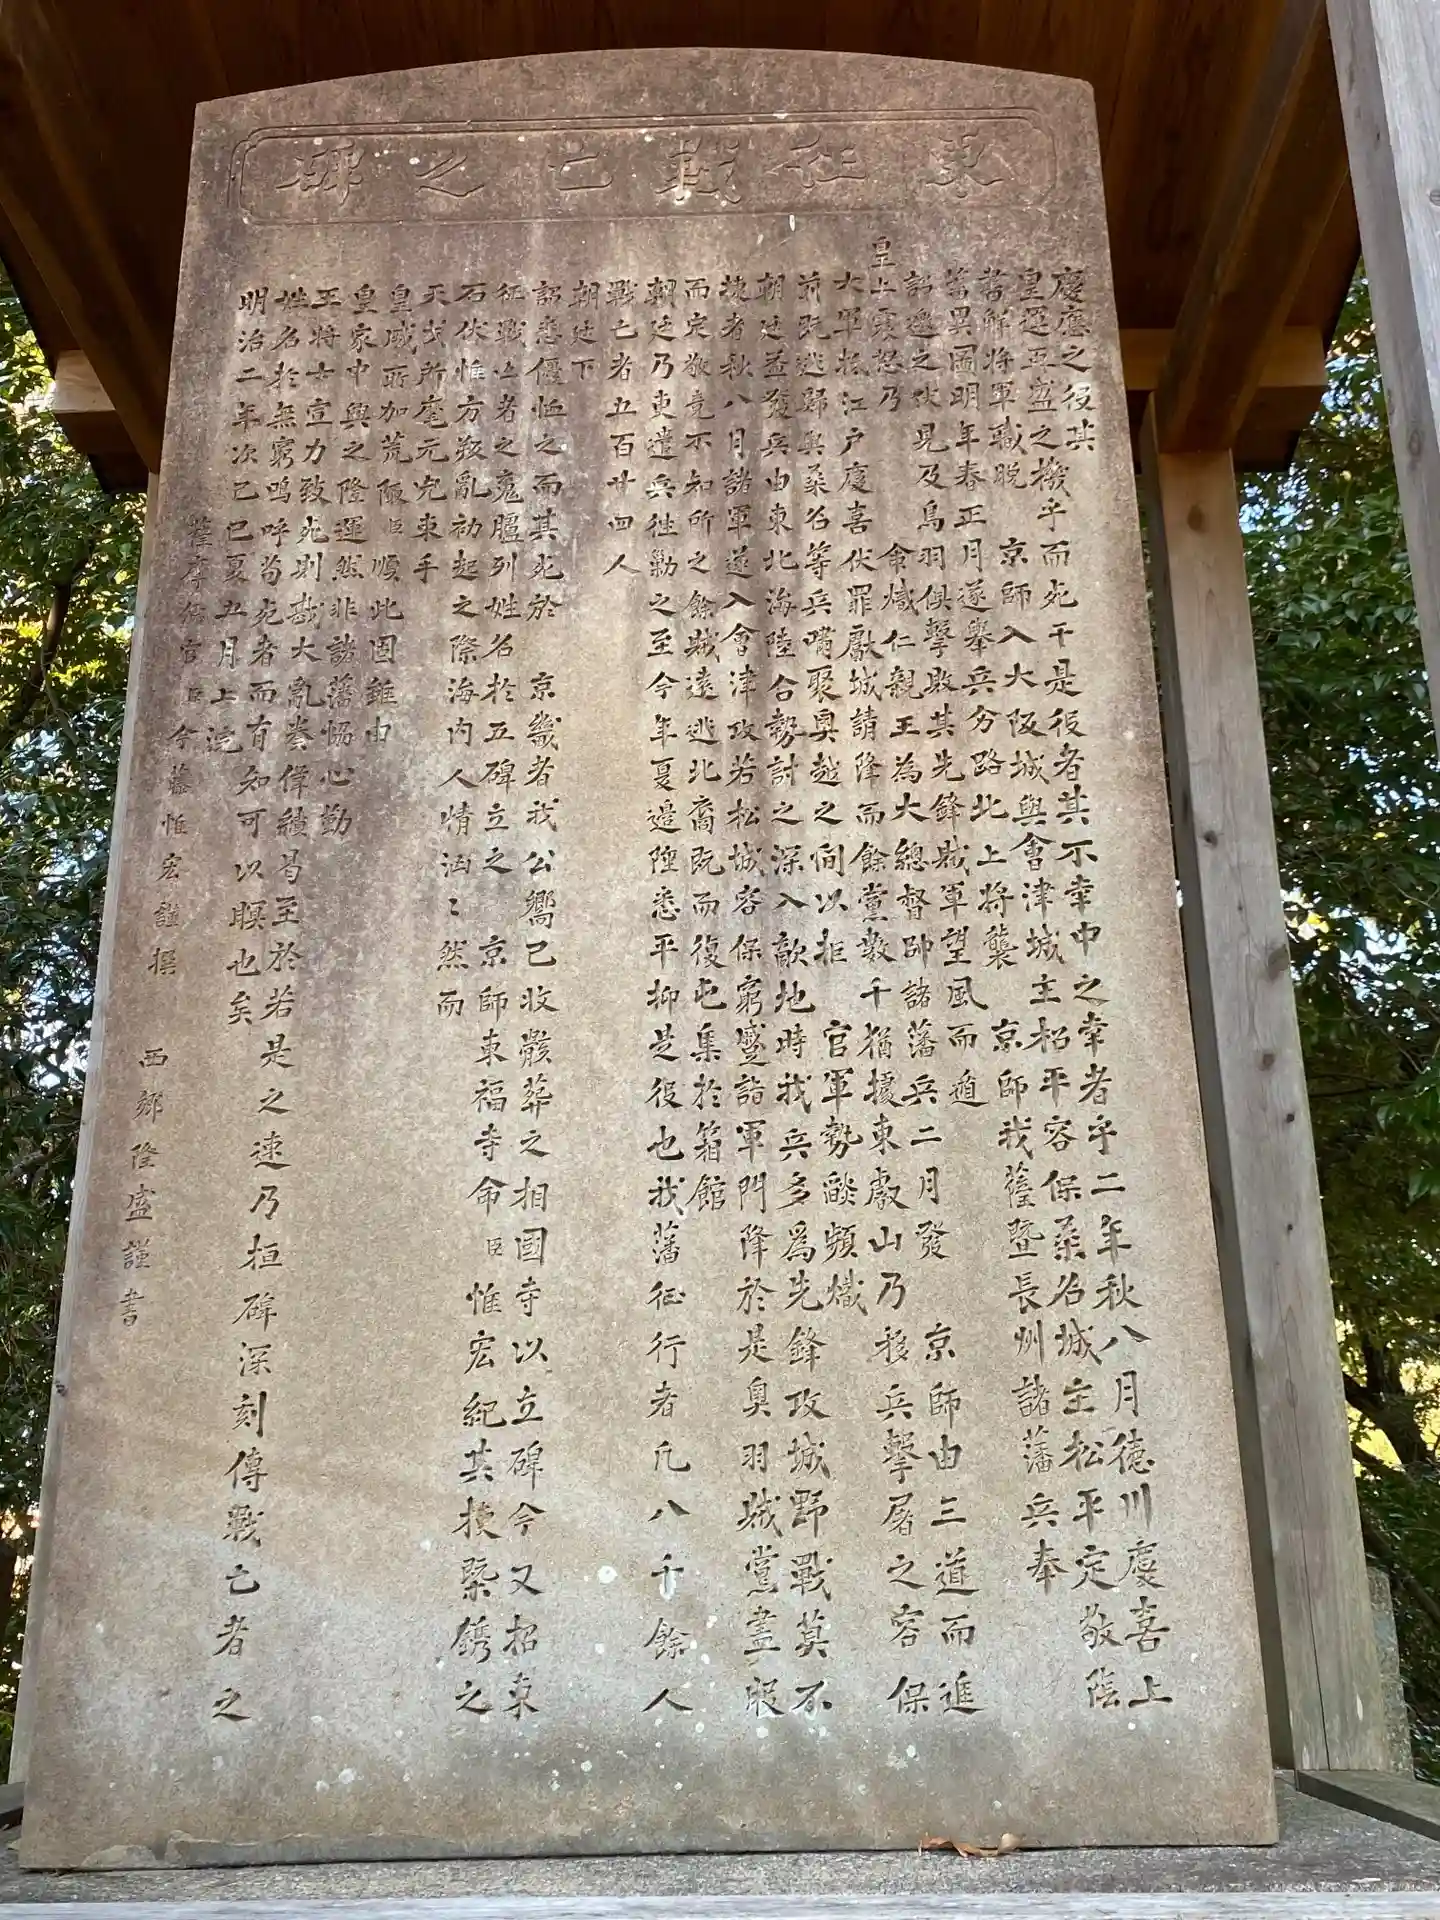 東征戰亡之碑
慶應之役其
皇運亞盛之機乎而死于是役者其不幸中之幸者乎二年秋八月德川慶喜上
書解將軍職脱 京師入大阪城與會津城主松平容保桑名城主松平定敬陰
蓄異圖明年春正月遂舉兵分路北上將襲 京師我薩暨長州諸藩兵奉
詔邀之伏見及鳥羽俱擊敗其先鋒賊軍望風而遁
皇上震怒乃 命熾仁親王為大總督帥諸藩兵二月發 京師由三道而進
大軍抵江戶慶喜伏罪獻城請降而餘黨數千猶據東叡山乃移兵擊屠之容保
前既逃歸與桑名等兵嘯聚奧越之間以拒 官軍勢燄頻熾
朝廷益發兵由東北海陸合勢討之深入敵地時我兵多為先鋒攻城野戰莫不
捷者秋八月諸軍遂入會津攻若松城容保窮蹙詣軍門降於是奧羽賊黨盡服
而定敬竟不知所之餘賊遠逃北裔既而復屯集於箱館
朝廷乃東遣兵往勦之至今年夏邊陲悉平抑是役也我藩征行者凡八千餘人
戰亡者五百廿四人
朝廷下
詔悉優恤之而其死於 京畿者我公嚮已收骸葬之相國寺以立碑今又招東
征戰亡者之魂臚列姓名於五碑立之 京師東福寺命臣惟宏紀其梗槩鐫之
石伏惟方亂初起之際海内人情洶々然而
天戈所麾元兇束手
皇威所加荒陬臣順此固雖由
皇家中興之隆運然非諸藩恊心勤
王將士宣力致死則戡大亂奏偉績曷至於若是之速乃垣碑深刻傳戰亡者之
姓名於無窮嗚呼苟死者而有知可以瞑也矣
明治二年次己巳夏五月上浣
薩摩儒官臣今藤惟宏謹撰 西鄉隆盛謹書